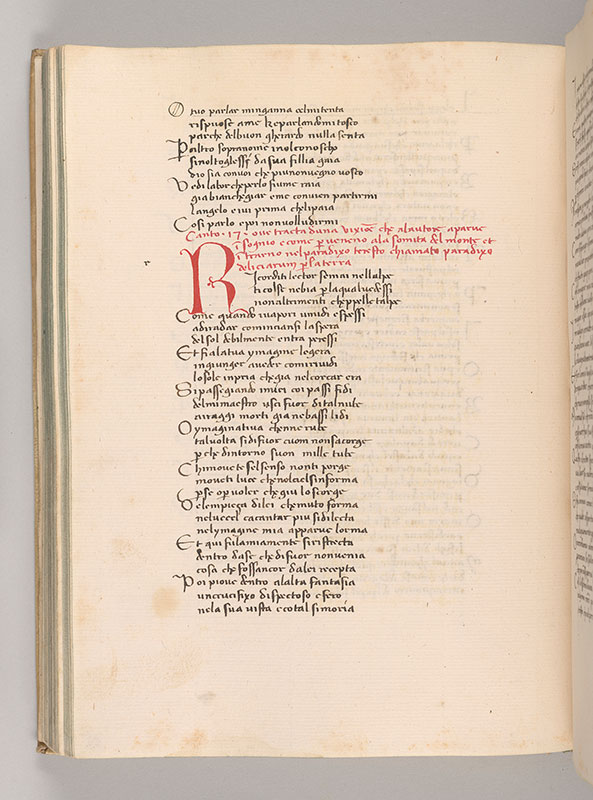 O tuo parlar minganna oelmitenta
rispuose ame ke parlandomi tosco
par che del buon gherardo nulla senta
Per altro sopranome inolconoscho
sinoltoglessi da sua fillia gaia
dio sia con voi che piu nonvegno vosco
Vedi labor cheperlo fiume raia
gia biancheggiar e me convien partirmi
langelo e ivi prima chelipaia
Cosi parlo epoi non volludirmi
Canto .17. ove tracta duna vixione che alautore aparue
In sognio e come pervenero ala somita del monte et
Itrarno nel paradixo tresto chiamato paradixo
deliciarum per la terra
Ricorditi lector se mai nellalpe
ti colse nebia per laqual vedessi
non altrimenti che ppelle talpe
Come quando ivapori umidi espessi
adiradar cominciansi laspera
del sol debilmente entra peressi
Et fia latua ymagine legera
ingiunger aveder comi rividi
losole inpria chegia nelcorcar era
Si passegiando imiei coi passi fidi
delmi maestro usci fuor di tal nube
ai raggi morti gia nebassi lidi
O ymaginativa chenne rube
talvolta sidifuor cuom nonsacorge
per che dintorno suon mille tube
Chi move te sel senso nonti porge
moveti luce chenolciel sinforma
per se o per voler che giu loscorge
Delempiezza di lei che muto forma
nel ucel cacantar piu sidilecta
nelymagine mia apparve lorma
Et qui fu la miamente si ristrecta
dentro dase che difuor nonvenia
cosa che fossancor dalei recepta
Poi piove dentro alalta fantasia
un crucifixo dispectoso e fero
nela sua vista e cotal si moria